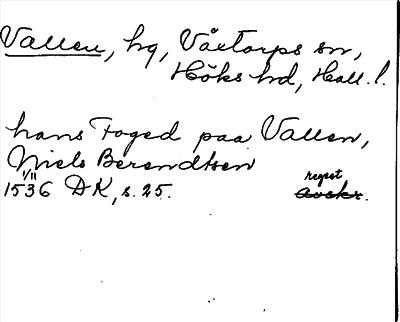 Vallen, hg, Våxtorps sn,
Höks hd, Hall. l.
hans Foged paa Vallen,
Niels Berendtsen
1/11
1536 DK, s. 25.
regest
avskr.